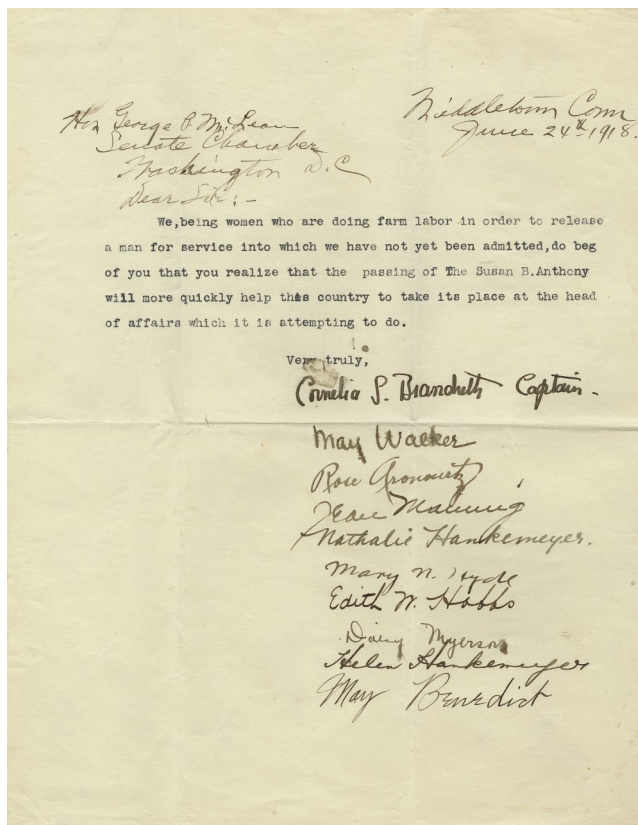 Middletown Conn
June 24th 1918.
Hon George P. McLean
Senate Chamber
Washington D.C
Dear Sir:-
We,being women who are doing farm labor in order to release
a man for service into which we have not yet been admitted,do beg
of you that you realize that the passing of The Susan B.Anthony
will more quickly help this country to take its place at the head
of affairs which it is attempting to do.
Very truly,
Cornelia S. Brandreth Captain.
May Walker
Rose Aronowitz
Jean Manning
Nathalie Hankemeyer.
Mary N. Hyde
Edith W. Hobbs
Daisy Myerson
Helen Hankemeyer
May Benedict